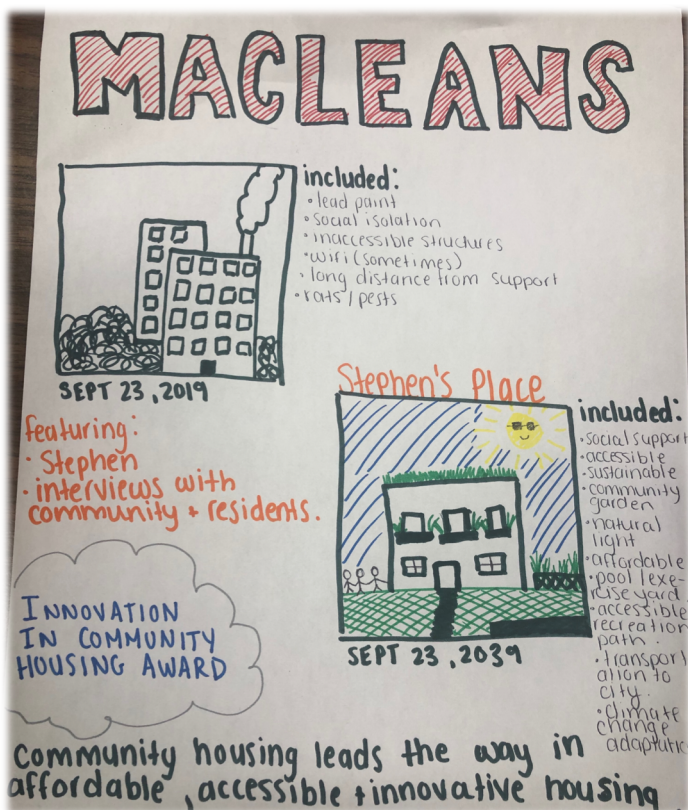 MACLEANS
included:
• lead paint
• social isolation
• inaccessible structures
• wifi (sometimes)
• long distance from support
• rats / pests
SEPT 23, 2019
featuring:
• Stephen
• interviews with
community + residents.
INNOVATION
IN COMMUNITY
HOUSING AWARD
Stephen's Place
SEPT 23, 2039
included:
• social support
• accessible
• sustainable
• community
garden
• natural
light
• affordable
• pool / exe-
rcise yard
• accessible
recreation
path.
• transport
ation to
city.
• climate
change
adaptatio
community housing leads the way in
affordable, accessible + innovative housing